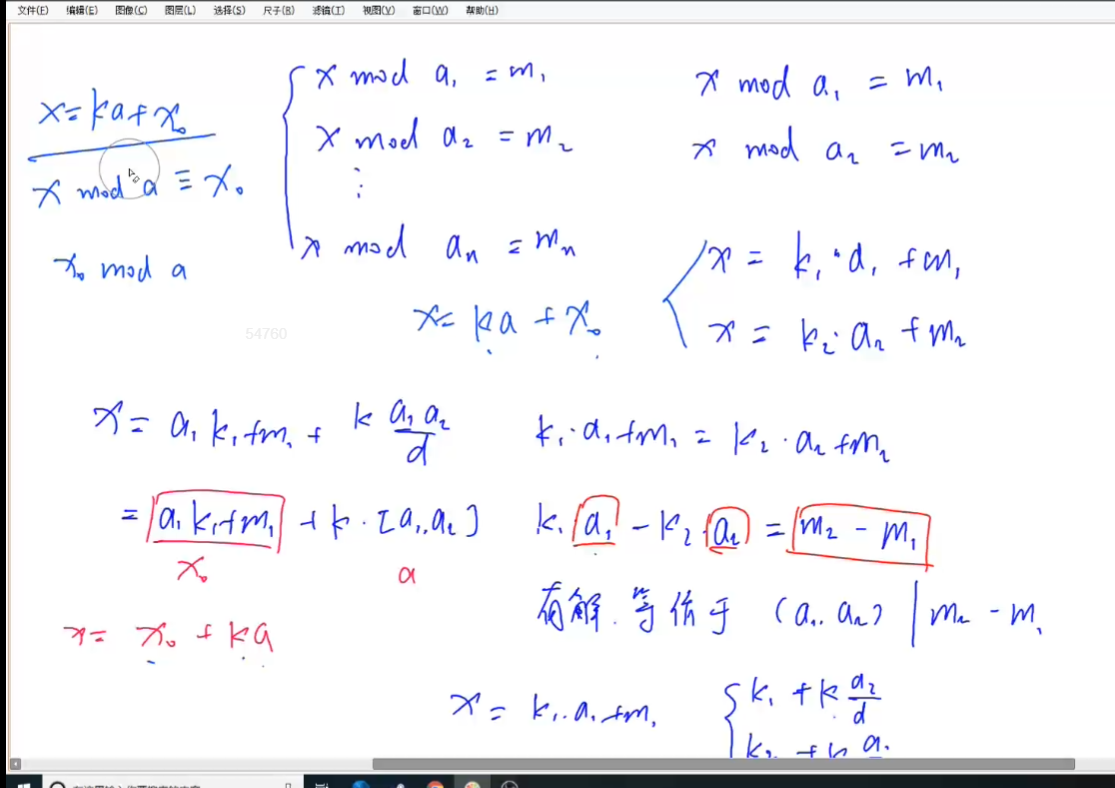 文件(F) 编辑(E) 图像(C) 图层(L) 选择(S) 尺子(R) 滤镜(T) 视图(V) 窗口(W) 帮助(H)
x = ka + x₀
x mod a ≡ x₀
x₀ mod a
x mod a₁ = m₁
x mod a₂ = m₂
⋮
x mod aₙ = mₙ
x = ka + x₀
x mod a₁ = m₁
x mod a₂ = m₂
x = k₁·a₁ + m₁
x = k₂·a₂ + m₂
54760
x = a₁k₁ + m₁ + k a₁a₂/d
= a₁k₁ + m₁ + k·[a₁,a₂]
x₀ a
x = x₀ + ka
k₁·a₁ + m₁ = k₂·a₂ + m₂
k₁·a₁ - k₂·a₂ = m₂ - m₁
有解.等价于 (a₁,a₂) | m₂ - m₁
x = k₁·a₁ + m₁
k₁ + k a₂/d